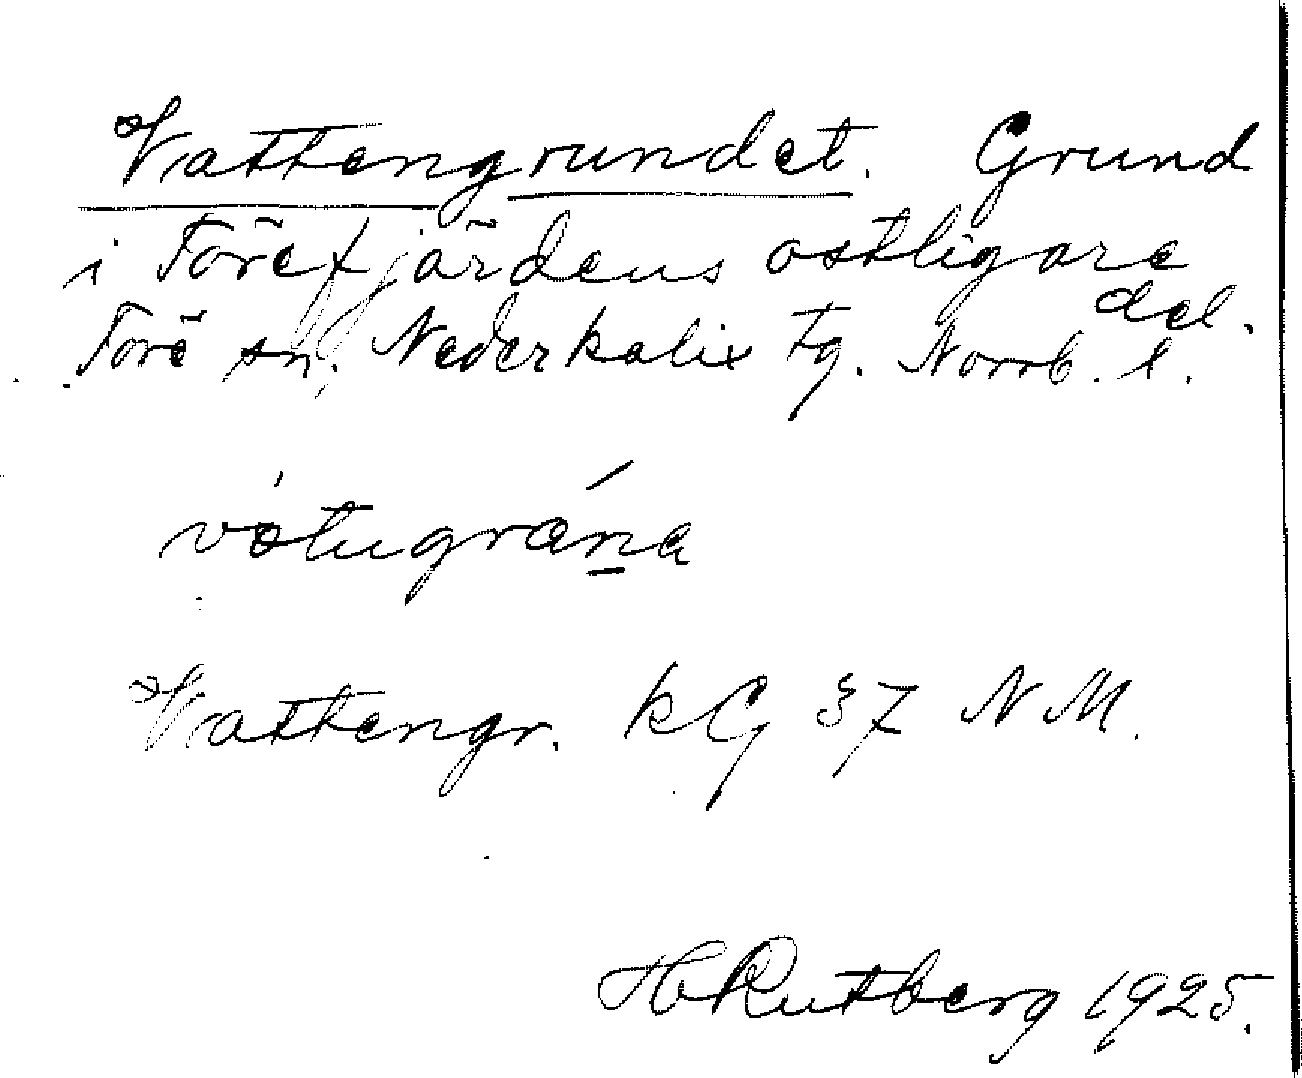 Vattengrundet. Grund
i Törefjärdens ostligare
del.
Töre sn. Nederkalix tg. Norrb. l.
Vattengr. kG 37 NM.
H Rutberg 1925.